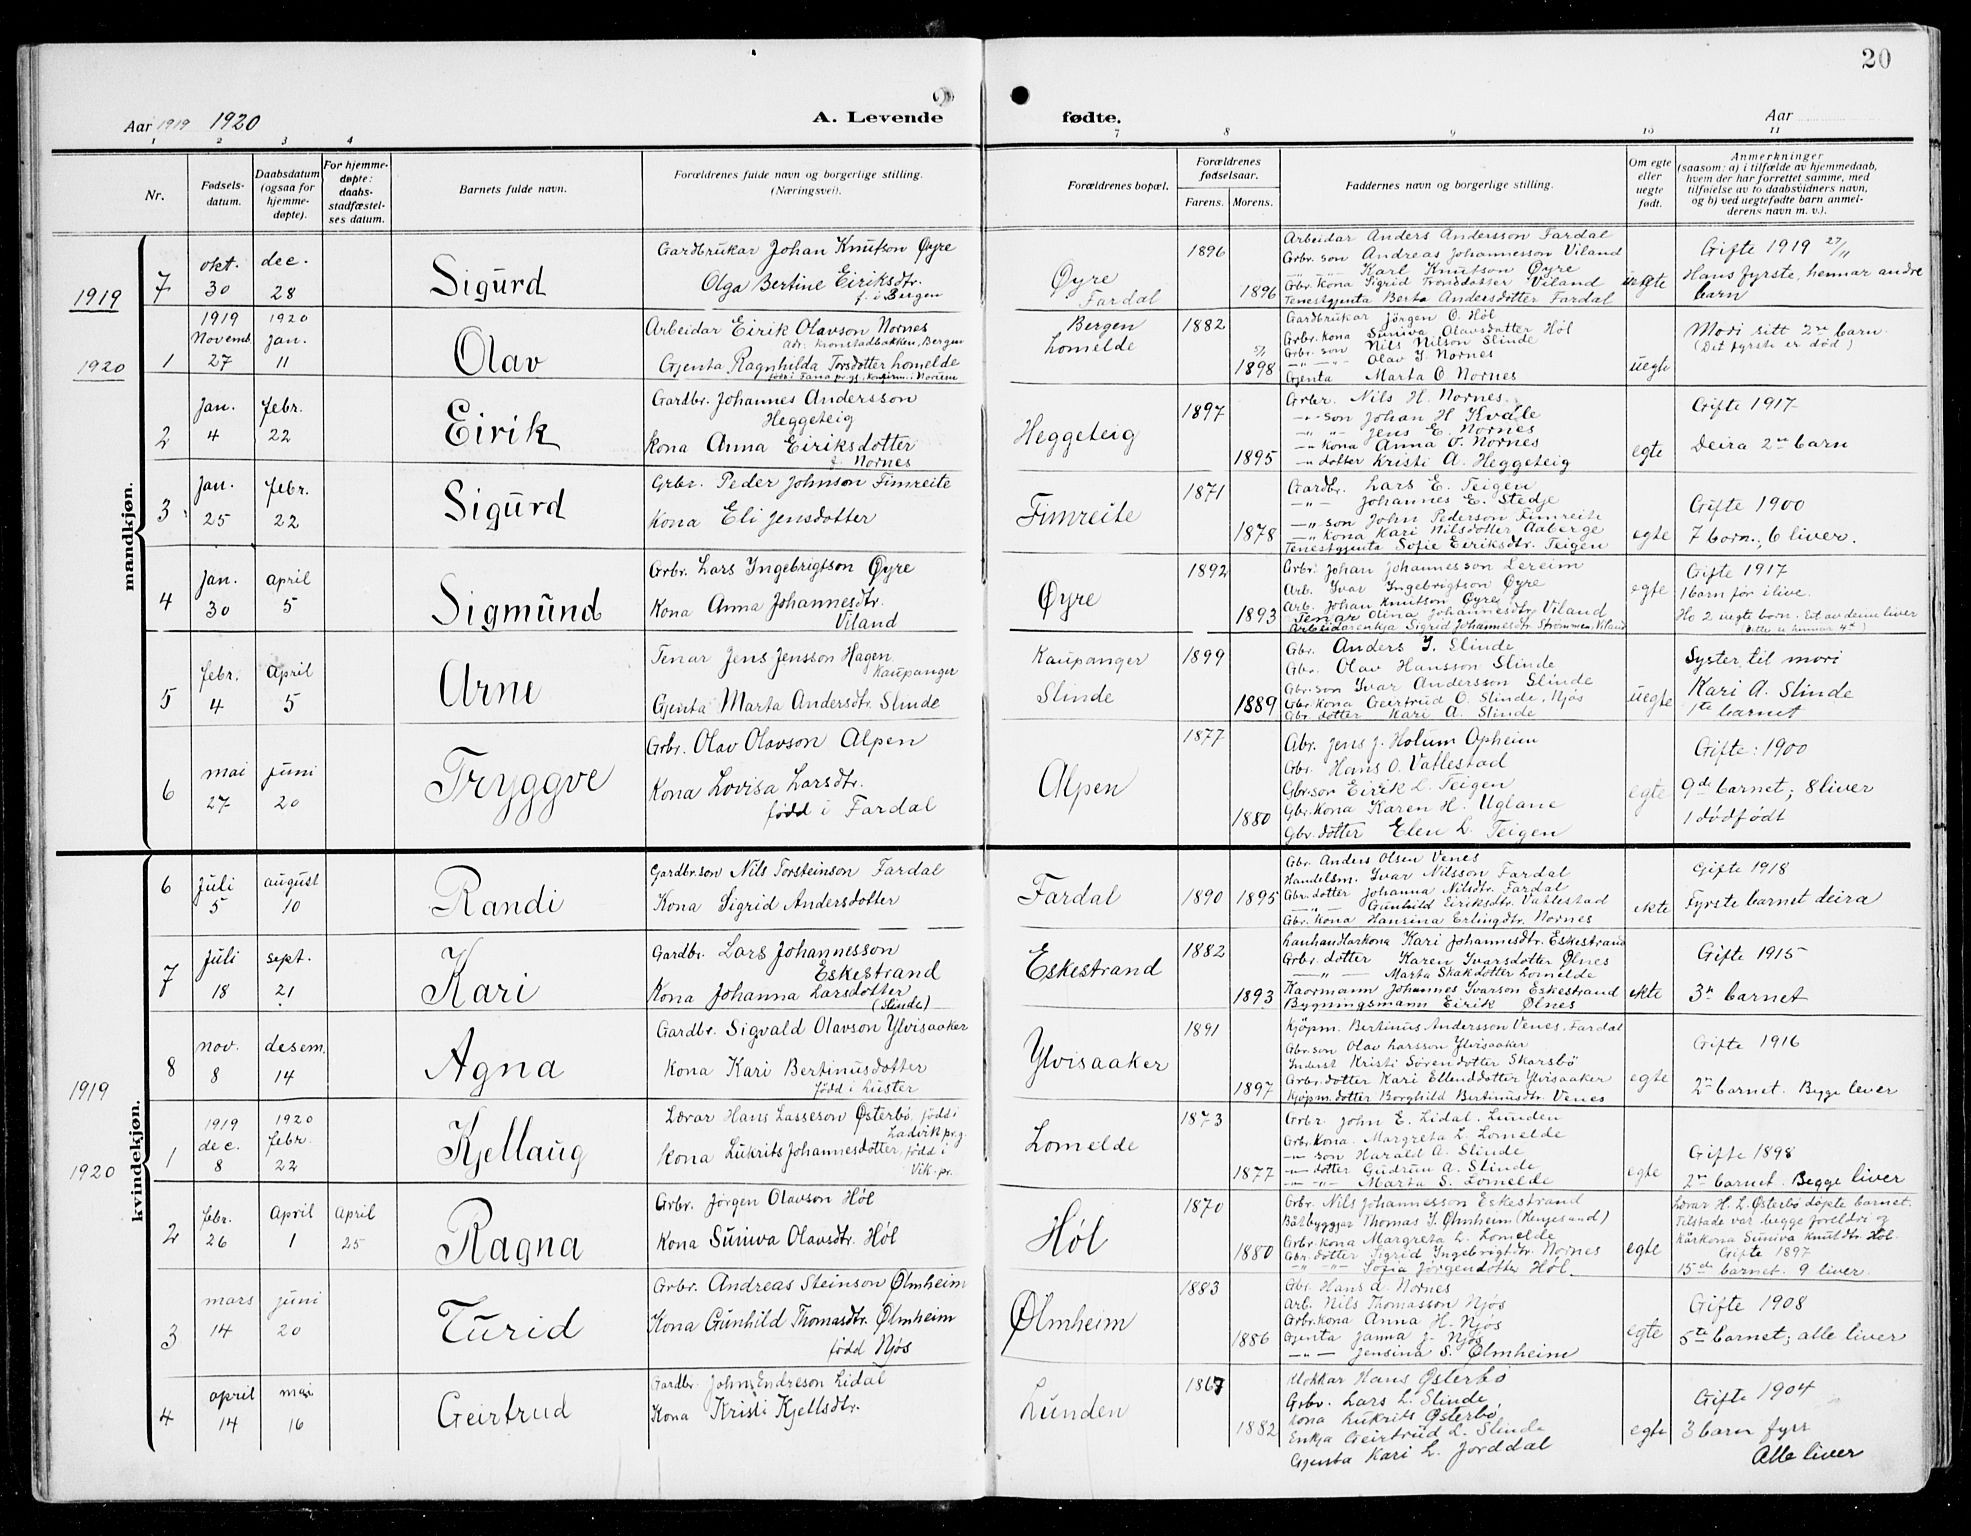 20
Aar 1919 1920
A. Levende fødte.
Aar
1 2 3 4 7 8 9 10 11
Nr.
Fødsels-datum.
Daabsdatum (ogsaa for hjemme-døpte).
For hjemme-døpte: daabs-stadfæstel-ses datum.
Barnets fulde navn.
Forældrenes fulde navn og borgerlige stilling. (Næringsvei).
Forældrenes bopæl.
Forældrenes fødselsaar.
Farens. Morens.
Faddernes navn og borgerlige stilling.
Om egte eller uegte født.
Anmerkninger (saasom: a) i tilfælde av hjemmedaab, hvem der har forrettet samme, med tilføielse av to daabsvidners navn, og b) ved uegtefødte barn anmel-derens navn m. v.).
mandkjøn.
1919
7
okt. 30
dec. 28
Sigurd
Gardbrukar Johan Knutson Øyre
Olga Bertine Eiriksdtr.
f. i Bergen
Øyre
Fardal
1896
1896
Arbeidar Anders Andersson Fardal
Grbr. son Andreas Johannesson Viland
Karl Knutson Øyre
Grbr. kona Sigrid Trondsdotter Viland
Tenestgjenta Berta Andersdotter Fardal
egte
Gifte 1919 27/11
Hans fyrste, hennar andre
barn
1920
1
1919 Novemb. 27
1920 jan. 11
Olav
Arbeidar Eirik Olavson Nornes
adr. Kronstadbakken, Bergen
Gjenta Ragnhilda Torsdotter Lomelde
Bergen
Lomelde
1882
1898
Gardbrukar Jørgen O. Høl
Grbr. kona Suniva Olavsdotter Høl
Grbr. son Nils Nilson Slinde
Olav I. Nornes
Gjenta Marta O Nornes
uegte
Mori sitt 2re barn.
(Det fyrste er død)
2
jan. 4
febr. 22
Eirik
Gardbr. Johannes Andersson
Heggeteig
Kona Anna Eiriksdotter
f. Nornes
Heggeteig
1897
1895
Grbr. Nils H. Nornes.
son Johan H Kvåle
Jens E. Nornes
kona Anna O. Nornes
dotter Kristi A. Heggeteig
egte
Gifte 1917
Deira 2re barn
3
jan. 25
febr. 22
Sigurd
Grbr. Peder Johnson Fimreite
Kona Eli Jensdotter
Fimreite
1871
1878
Gardbr. Lars E. Teigen
Johannes E. Stedje
son John Pederson Fimreite
kona Kari Nilsdotter Aaberge
Tenestgjenta Sofie Eiriksdtr. Teigen
egte
Gifte 1900
7 born., 6 liver.
4
jan. 30
april 5
Sigmund
Grbr. Lars Ingebrigtson Øyre
Kona Anna Johannesdtr.
Viland
Øyre
1892
1893
Grbr. Johan Johannesson Lereim
Arb. Ivar Ingebrigtson Øyre
Arb. Johan Knutson Øyre
Tenar Olina Johannesdtr. Viland
Arbeidarenkja Sigrid Johannesdtr Strømmen, Viland
egte
Gifte 1917
1 barn før ilive.
Ho 2 uegte born. Eit av deim liver
5
febr. 4
april 5
Arne
Tenar Jens Jensson Hagen
Kaupanger
Gjenta Marta Andersdtr. Slinde
Kaupanger
Slinde
1899
1889
Gbr. Anders I. Slinde
Gbr. Olav Hansson Slinde
Gbr. son Ivar Andersson Slinde
Gbr. kona Geirtrud O. Slinde, Njøs
Gbr. dotter Kari A. Slinde
uegte
Syster til mori
Kari A. Slinde
1te barnet
6
mai 27
juni 20
Tryggve
Grbr. Olav Olavson Alpen
Kona Lovisa Larsdtr.
född i Fardal
Alpen
1877
1880
Gbr. Jens J. Holum Opheim
Gbr. Hans O. Vallestad
Gbr. son Eirik L. Teigen
Gbr. Kona Karen H. Uglane
Gbr. dotter Elen L. Teigen
egte
Gifte: 1900
9de barnet; 8 liver
1 dödfödt
kvindekjøn.
6
juli 5
august 10
Randi
Gardbr.son Nils Torsteinson Fardal
Kona Sigrid Andersdotter
Fardal
1890
1895
Gbr. Anders Olsen Venes
Handelsm. Ivar Nilsson Fardal
Gbr. dotter Johanna Nilsdtr. Fardal
Gunhild Eiriksdtr. Vallestad
Gbr. kona Hansina Erlingdtr. Nornes
ekte
Gifte 1918
Fyrste barnet deira
7
juli 18
sept. 21
Kari
Gardbr. Lars Johannesson
Eskestrand
Kona Johanna Larsdotter
(Slinde)
Eskestrand
1882
1893
Lanhandlarkona Kari Johannesdtr. Eskestrand
Grbr. dotter Karen Ivarsdotter Ølnes
Marta Skakdotter Lomelde
Kaarmann Johannes Ivarson Eskestrand
Bygningsmann Eirik Ølnes
ekte
Gifte 1915
3e barnet
1919
8
nov. 8
desem. 14
Agna
Gardbr. Sigvald Olavson Ylvisaaker
Kona Kari Bertinusdotter
född i Luster
Ylvisaaker
1891
1897
Kjøpm. Bertinus Andersson Venes, Fardal
Gbr. son Olav Larsson Ylvisaaker
Inderst Kristi Sörendotter Skarsbö
Grbr. dotter Kari Ellenddotter Ylvisaaker
Kjöpm. dotter Borghild Bertinusdtr. Venes
egte
Gifte 1916
2re barnet. Begge lever
1920
1
1919 dec. 8
1920 febr. 22
Kjellaug
Lærar Hans Lasseson Østerbö, född i
Ladvik pr.g.
Kona Lukrits Johannesdotter, född i
Vik. pr.
Lomelde
1873
1877
Grbr. John E. Lidal. Lunden
Grbr. kona. Margreta L. Lomelde
son Harald A. Slinde
dotter Gudrun A. Slinde
Marta S. Lomelde
egte
Gifte 1898
2re barnet. Begge liver
2
febr. 26
April 1
April 25
Ragna
Grbr. Jörgen Olavson Høl
Kona Suniva Olavsdtr. Høl
Høl
1870
1880
Grbr. Nils Johannesson Eskestrand
Båtbyggjar Thomas I. Ølmheim (Henjesand)
Grbr. kona Margreta L. Lomelde
Gbr. dotter Sigrid Ingebrigtdtr. Nornes
Sofia Jörgendotter Høl
egte
Lærar H. L. Østerbö döpte barnet.
Tilstade var begge foreldri og
Kårkona Suniva Knutdtr. Høl.
Gifte 1897
15de barnet. 9 liver.
3
mars 14
juni 20
Turid
Grbr. Andreas Steinson Ølmheim
Kona Gunhild Thomasdtr. Ølmheim
född Njøs
Ølmheim
1883
1886
Gbr. Hans A. Nornes
Arb. Nils Thomasson Njøs
Grbr. kona Anna H. Njøs
Gjenta Janna J. Njøs
Jensina S. Ølmheim
egte
Gifte 1908
5te barnet; alle liver
4
april 14
mai 16
Geirtrud
Gardbr. John Endreson Lidal
Kona Kristi Kjellsdtr.
Lunden
1867
1882
Klokkar Hans Østerbö
Grbr. Lars L. Slinde
Kona Lukrits Østerbö
Enkja Geirtrud L. Slinde
Gjenta Kari L. Jorddal
egte
Gifte 1904
3 barn fyrr
Alle liver